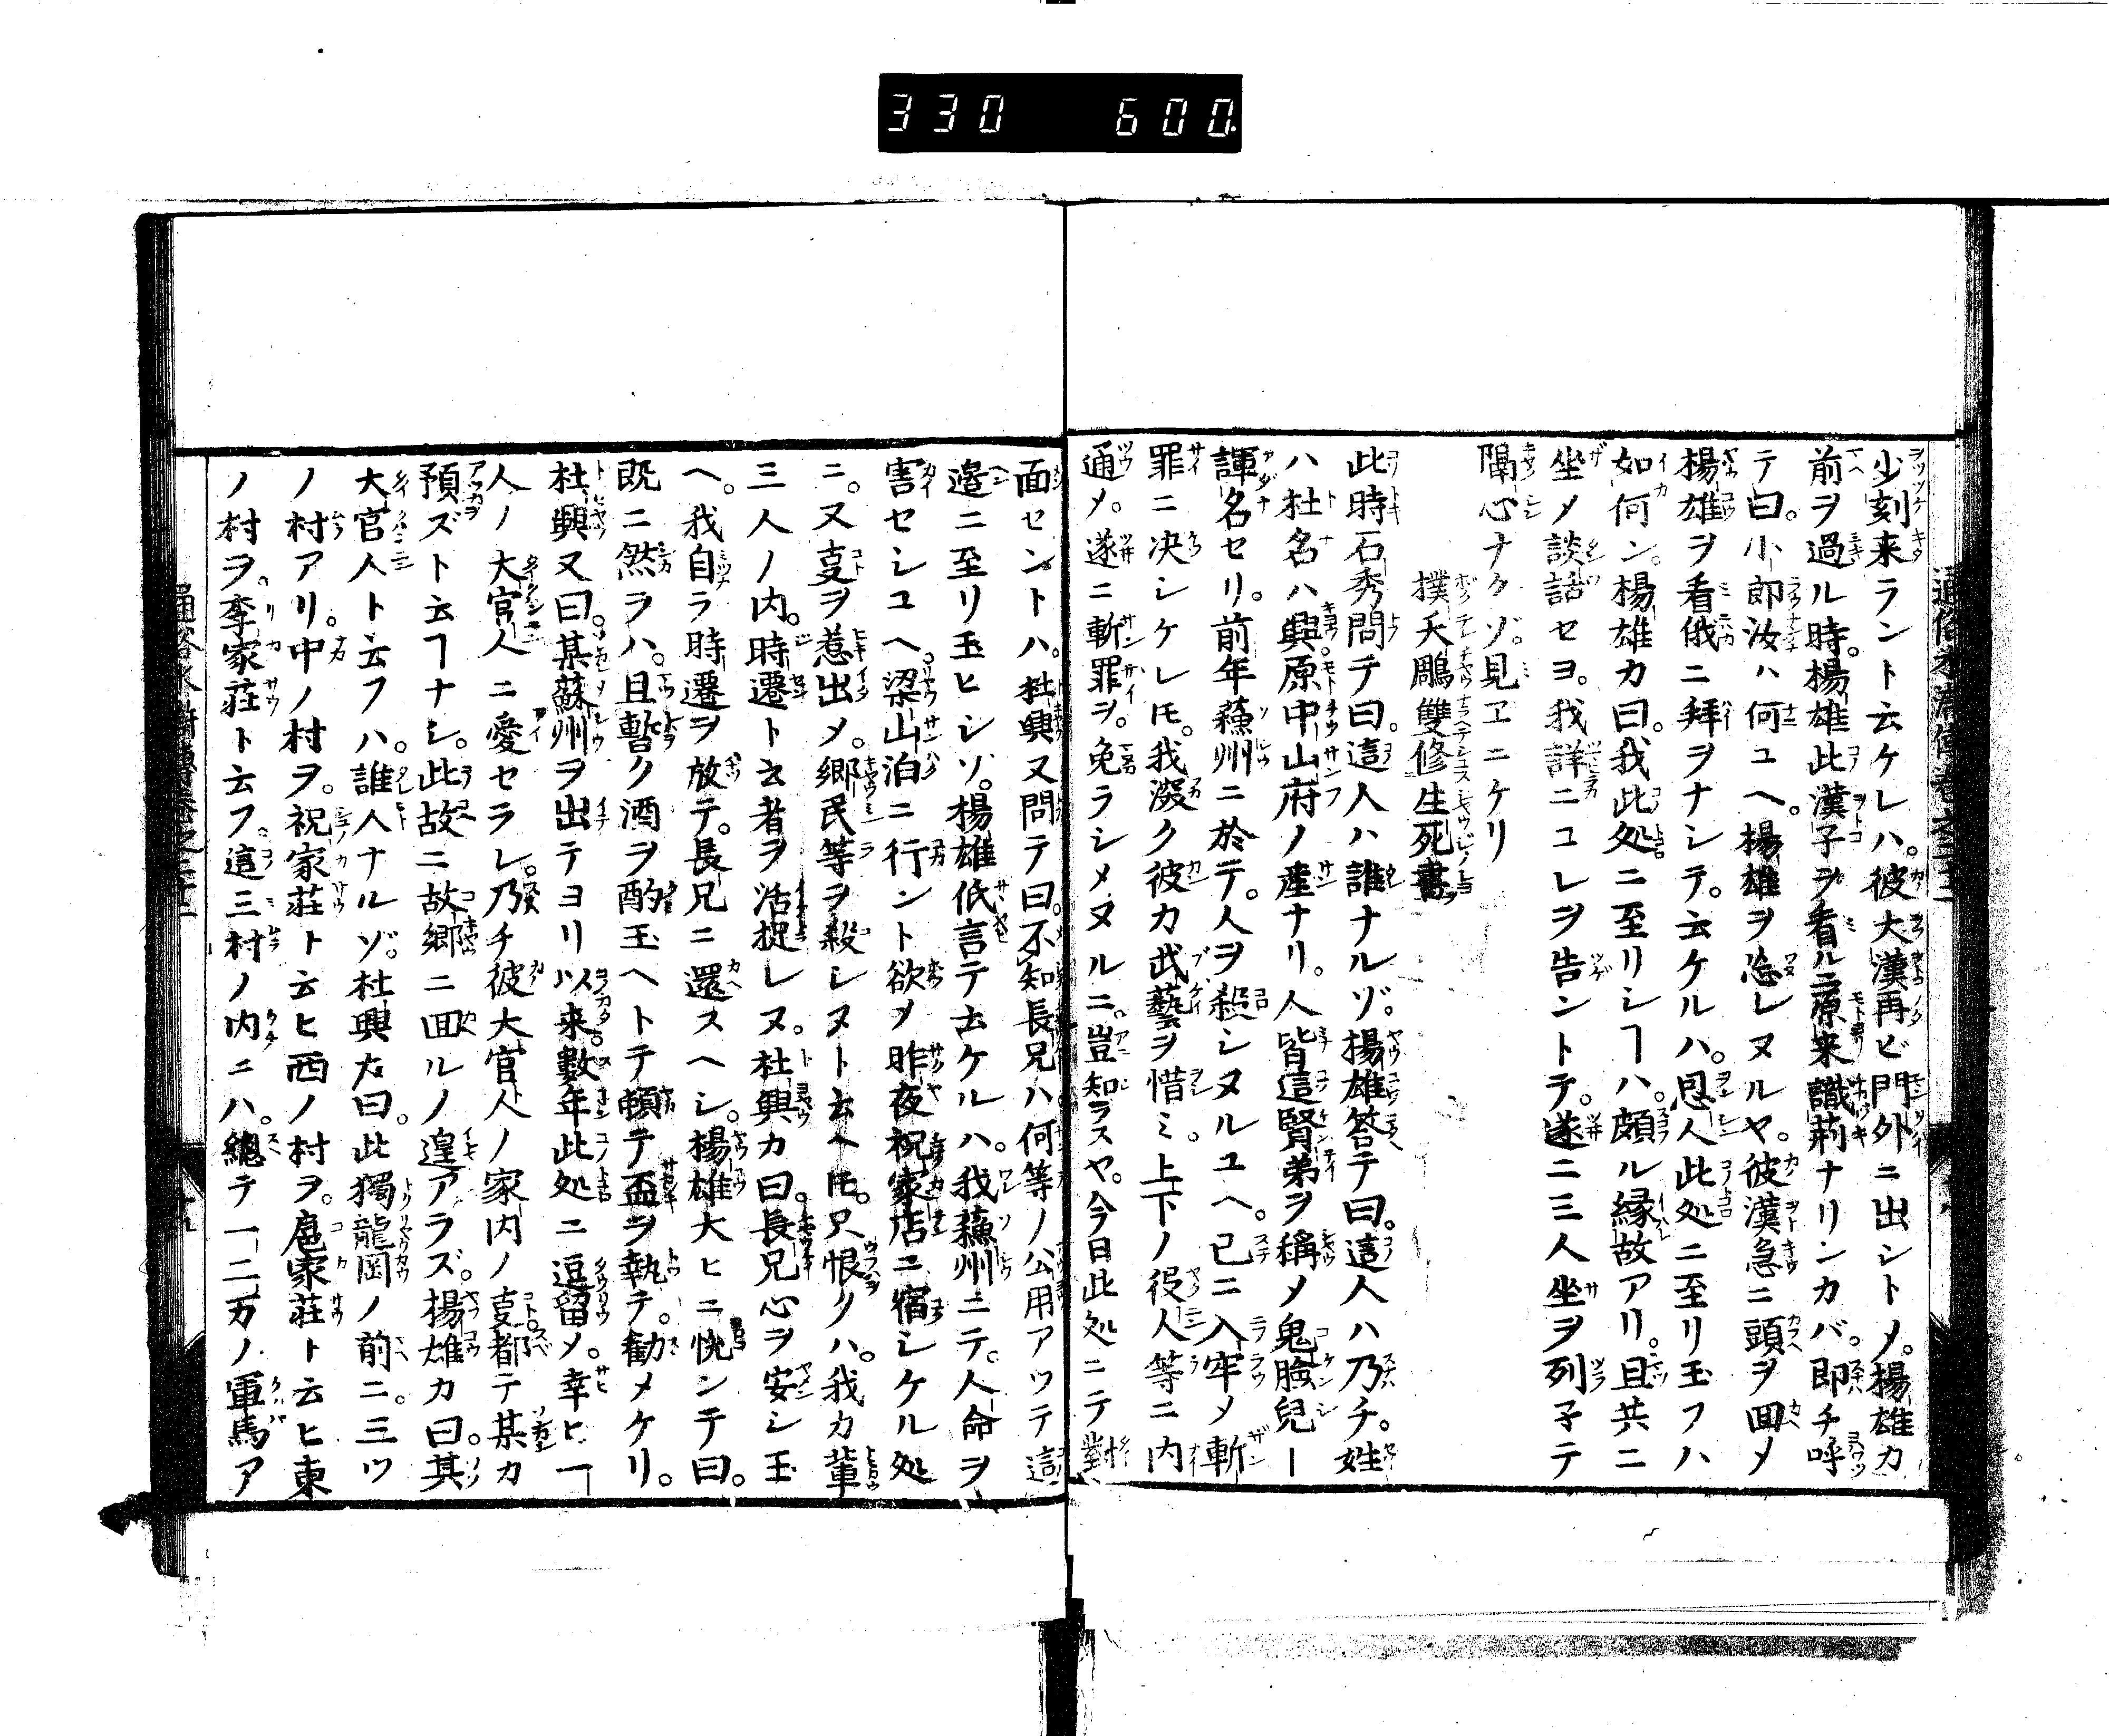 330 600.
少刻来ラント云ケレハ。彼大漢再ビ門外ニ出シトメ。楊雄カ
前ヲ過ル時。楊雄此漢子ヲ看ルニ原来識荊ナリンカバ。即チ呼
テ曰。小郎汝ハ何ユヘ。楊雄ヲ忘レヌルヤ。彼漢急ニ頭ヲ回メ
楊雄ヲ看俄ニ拜ヲナシテ。云ケルハ。恩人此処ニ至リ玉フハ
如何ン。楊雄カ曰。我此処ニ至リシヿハ。頗ル縁故アリ。且共ニ
坐メ談話セヨ。我詳ニコレヲ告ントテ。遂ニ三人坐ヲ列子テ
隔心ナクゾ。見ヱニケリ
撲天鵰雙修生死書
此時石秀問テ曰。這人ハ誰ナルゾ。楊雄答テ曰。這人ハ乃チ。姓
ハ杜名ハ興。原中山府ノ産ナリ。人皆這賢弟ヲ稱メ鬼臉兒ー
諢名セリ。前年蘓州ニ於テ。人ヲ殺シヌルユヘ。已ニ入牢メ斬
罪ニ决シケレ𪜈。我深ク彼カ武藝ヲ惜ミ。上下ノ役人等ニ内
通メ。遂ニ斬罪ヲ。免ラシメヌルニ。豈知ラスヤ。今日此処ニテ對
面セントハ。杜興又問テ曰。不知長兄ハ何等ノ公用アツテ這
邉ニ至リ玉ヒシソ。楊雄低言テ云ケルハ。我蘓州ニテ。人命ヲ
害セシユヘ。梁山泊ニ行ント欲メ昨夜祝家店ニ宿シケル処
ニ。又㕝ヲ惹出メ。郷民等ヲ殺シヌト云ヘ𪜈。只恨クハ。我カ輩
三人ノ内。時遷ト云者ヲ活捉レヌ。杜興カ曰。長兄心ヲ安シ玉
ヘ。我自ラ時遷ヲ放テ。長兄ニ還スヘシ。楊雄大ヒニ恱ンテ曰。
既ニ然ラハ。且暫ク酒ヲ酌玉ヘトテ頓テ盃ヲ執テ。勸メケリ。
杜興又曰。某蘇州ヲ出テヨリ以来。數年此処ニ逗留メ。幸ヒ一
人ノ大官人ニ愛セラレ。乃チ彼大官人ノ家内ノ㕝都テ某カ
預ズト云ヿナシ。此故ニ故郷ニ回ルノ遑アラズ。楊雄カ曰。其
大官人ト云フハ。誰人ナルゾ。杜興カ曰。此獨龍岡ノ前ニ。三ツ
ノ村アリ。中ノ村ヲ。祝家莊ト云ヒ西ノ村ヲ。扈家莊ト云ヒ東
ノ村ヲ。李家莊ト云フ。這三村ノ内ニハ。總テ一二万ノ軍馬ア